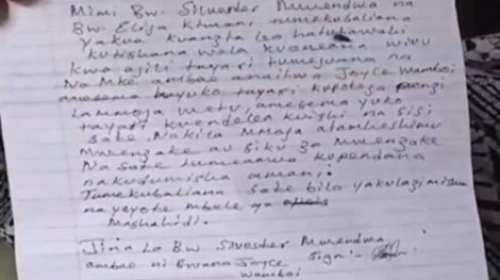 Mimi Bw. Silvester Mwendwa na
Bw. Elija Kimani, tumekubaliana
yakwa kuanzia leo hatutawahi
kutishana wala kuoneana wivu
kwa ajili tayari tumejuana na
Na mke ambae anaitwa Joyce Wamboi
amesema hayuko tayari kupoteza penzi
La mmoja wetu, amesema yuko
tayari kwendelea kuishi na sisi
sote Nakila mmoja atamheshimu
Mwenzake au siku za mwenzake
Na sote tumeamua kupendana
nakudumisha amani.
Tumekubaliana sote bila yakulazimishwa
na yeyote mbele ya
Mashahidi.
Jina La Bw. Silvester Mwendwa
ambae ni Bwana Joyce sign:-
Wamboi